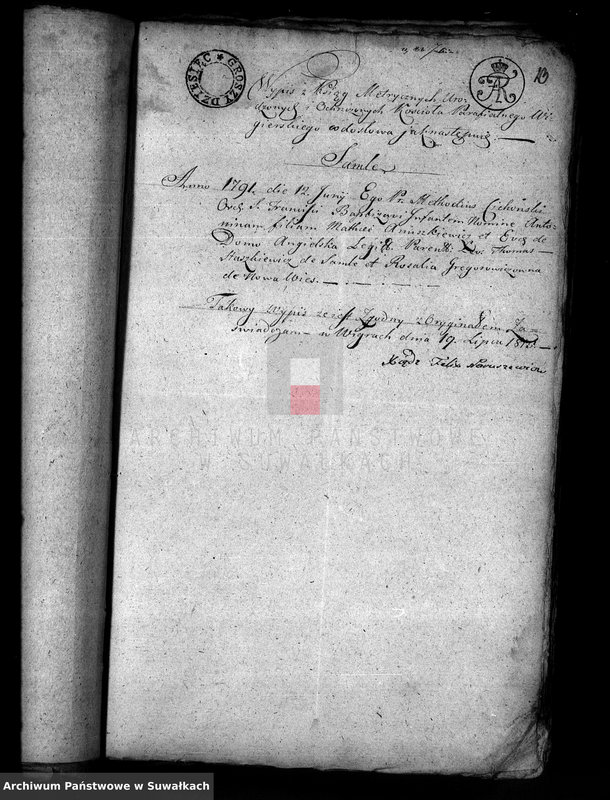 10
GROSZY DZIESIĘĆ
Wypis z Xsiąg Metrycznych Uro-
dzonych i Ochrzconych Kościoła Parafialnego Wi-
gierskiego co do słowa jak następuie
Samle
Anno 1791. die 12 Junij Ego Pr. Methodius Cichoński
Ord. S. Francisci Baptizavi Infantem Nomine Anto-
ninam, filiam Mathei et Evę de
Domo Angielska Legit. Parent. Lev. Thomas
Staszkiewicz de Samle et Rosalia Gregorowiczowna
de Nowa Wies.
Takowy wypis że iest Zgodny z Oryginałem Za-
świadczam w Wigrach dnia 19. Lipca
Xiądz Felix
ARCHIWUM PAŃSTWOWE
W SUWAŁKACH
Archiwum Państwowe w Suwałkach